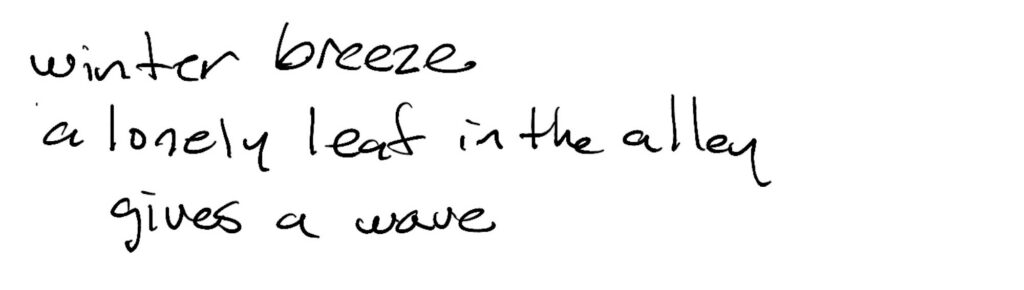 winter breeze
a lonely leaf in the alley
gives a wave